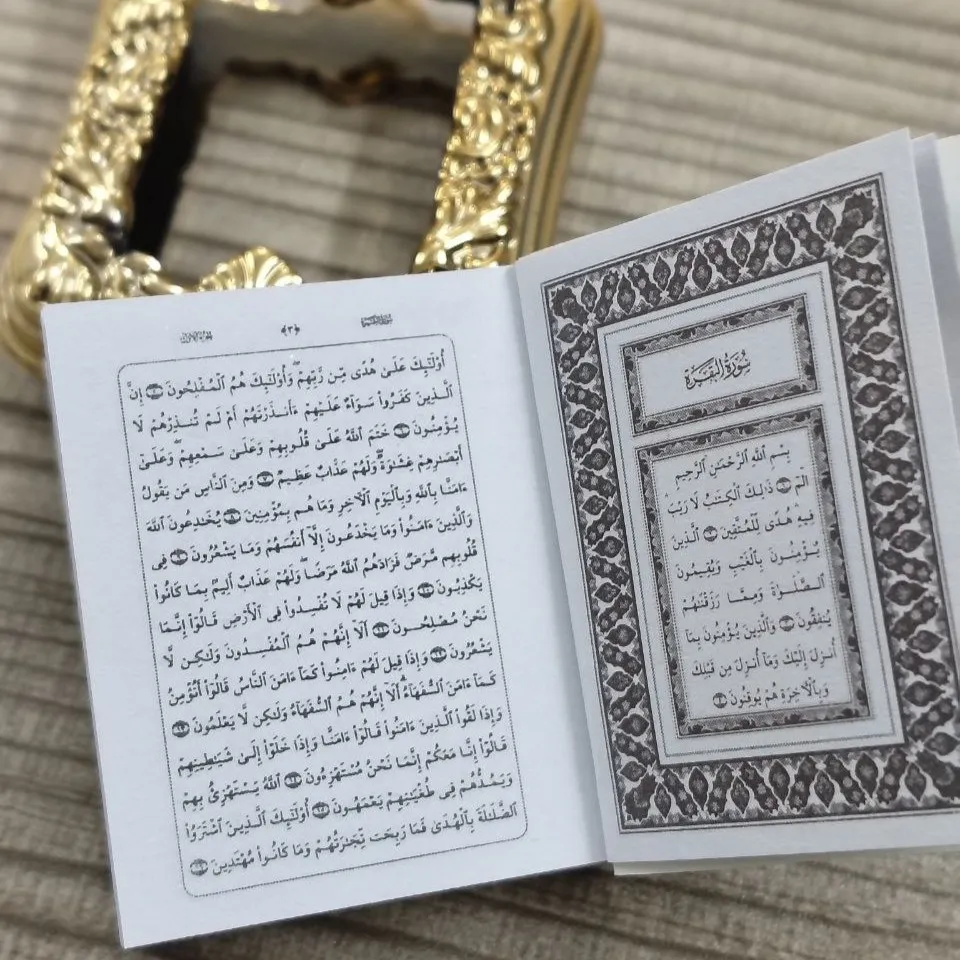 سُورَةُ البَقَرَةِ
بِسْمِ اللَّهِ الرَّحْمَٰنِ الرَّحِيمِ
الٓمٓ ذَٰلِكَ الْكِتَٰبُ لَا رَيْبَ
فِيهِ هُدًى لِّلْمُتَّقِينَ الَّذِينَ
يُؤْمِنُونَ بِالْغَيْبِ وَيُقِيمُونَ
الصَّلَوٰةَ وَمِمَّا رَزَقْنَٰهُمْ
يُنفِقُونَ وَالَّذِينَ يُؤْمِنُونَ بِمَا
أُنزِلَ إِلَيْكَ وَمَآ أُنزِلَ مِن قَبْلِكَ
وَبِالْأٓخِرَةِ هُمْ يُوقِنُونَ
سورة البقرة ﴿٣﴾ الجزء الأول
أُوْلَٰٓئِكَ عَلَىٰ هُدًى مِّن رَّبِّهِمْ ۖ وَأُوْلَٰٓئِكَ هُمُ الْمُفْلِحُونَ إِنَّ
الَّذِينَ كَفَرُوا۟ سَوَآءٌ عَلَيْهِمْ ءَأَنذَرْتَهُمْ أَمْ لَمْ تُنذِرْهُمْ لَا
يُؤْمِنُونَ خَتَمَ اللَّهُ عَلَىٰ قُلُوبِهِمْ وَعَلَىٰ سَمْعِهِمْ ۖ وَعَلَىٰٓ
أَبْصَٰرِهِمْ غِشَٰوَةٌ ۖ وَلَهُمْ عَذَابٌ عَظِيمٌ وَمِنَ النَّاسِ مَن يَقُولُ
ءَامَنَّا بِاللَّهِ وَبِالْيَوْمِ الْأٓخِرِ وَمَا هُم بِمُؤْمِنِينَ يُخَٰدِعُونَ اللَّهَ
وَالَّذِينَ ءَامَنُوا۟ وَمَا يَخْدَعُونَ إِلَّآ أَنفُسَهُمْ وَمَا يَشْعُرُونَ فِى
قُلُوبِهِم مَّرَضٌ فَزَادَهُمُ اللَّهُ مَرَضًا ۖ وَلَهُمْ عَذَابٌ أَلِيمٌۢ بِمَا كَانُوا۟
يَكْذِبُونَ وَإِذَا قِيلَ لَهُمْ لَا تُفْسِدُوا۟ فِى الْأَرْضِ قَالُوٓا۟ إِنَّمَا
نَحْنُ مُصْلِحُونَ أَلَآ إِنَّهُمْ هُمُ الْمُفْسِدُونَ وَلَٰكِن لَّا
يَشْعُرُونَ وَإِذَا قِيلَ لَهُمْ ءَامِنُوا۟ كَمَآ ءَامَنَ النَّاسُ قَالُوٓا۟ أَنُؤْمِنُ
كَمَآ ءَامَنَ السُّفَهَآءُ ۗ أَلَآ إِنَّهُمْ هُمُ السُّفَهَآءُ وَلَٰكِن لَّا يَعْلَمُونَ
وَإِذَا لَقُوا۟ الَّذِينَ ءَامَنُوا۟ قَالُوٓا۟ ءَامَنَّا وَإِذَا خَلَوْا۟ إِلَىٰ شَيَٰطِينِهِمْ
قَالُوٓا۟ إِنَّا مَعَكُمْ إِنَّمَا نَحْنُ مُسْتَهْزِءُونَ اللَّهُ يَسْتَهْزِئُ بِهِمْ
وَيَمُدُّهُمْ فِى طُغْيَٰنِهِمْ يَعْمَهُونَ أُوْلَٰٓئِكَ الَّذِينَ اشْتَرَوُا۟
الضَّلَٰلَةَ بِالْهُدَىٰ فَمَا رَبِحَت تِّجَٰرَتُهُمْ وَمَا كَانُوا۟ مُهْتَدِينَ